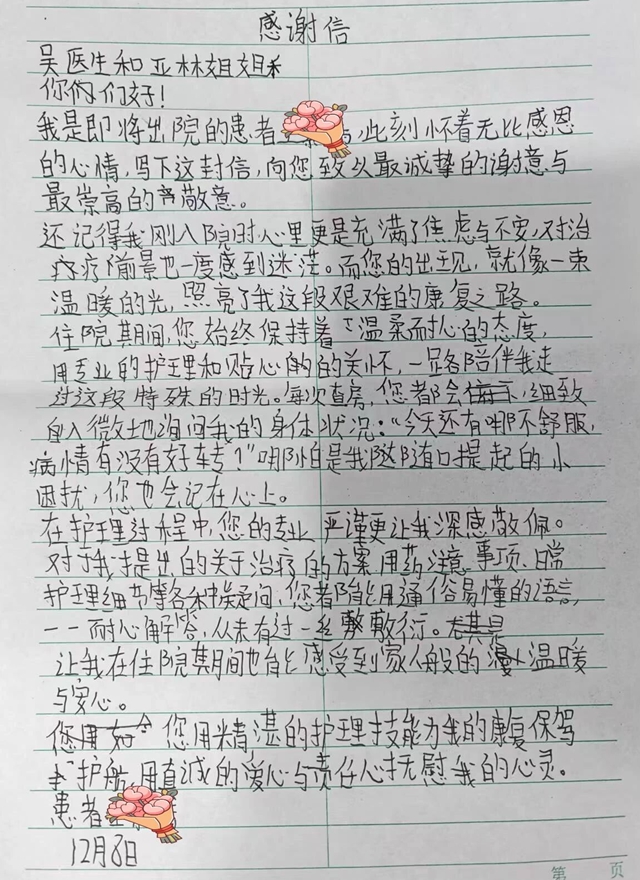 感谢信
吴医生和亚林姐姐
你们好！
我是即将出院的患者，此刻怀着无比感恩
的心情，写下这封信，向您致以最诚挚的谢意与
最崇高的敬意。
还记得我刚入院时心里更是充满了焦虑与不安，对治
疗前景也一度感到迷茫。而您的出现，就像一束
温暖的光，照亮了我这段艰难的康复之路。
住院期间，您始终保持着温柔耐心的态度，
用专业的护理和贴心的的关怀，一路陪伴我走
过这段特殊的时光。每次查房，您都会细致
入微地询问我的身体状况："今天还有哪不舒服，
病情有没有好转？"哪怕是我随口提起的小
困扰，您也会记在心上。
在护理过程中，您的专业严谨更让我深感敬佩。
对于我提出的关于治疗的方案、用药注意事项、日常
护理细节等各种疑问，您都能用通俗易懂的语言，
一一耐心解答，从未有过一丝敷衍。
让我在住院期间也能感受到家人般的温暖
与安心。
您用精湛的护理技能为我的康复保驾
护航，用真诚的爱心与责任心抚慰我的心灵。
患者
12月8日
第 页